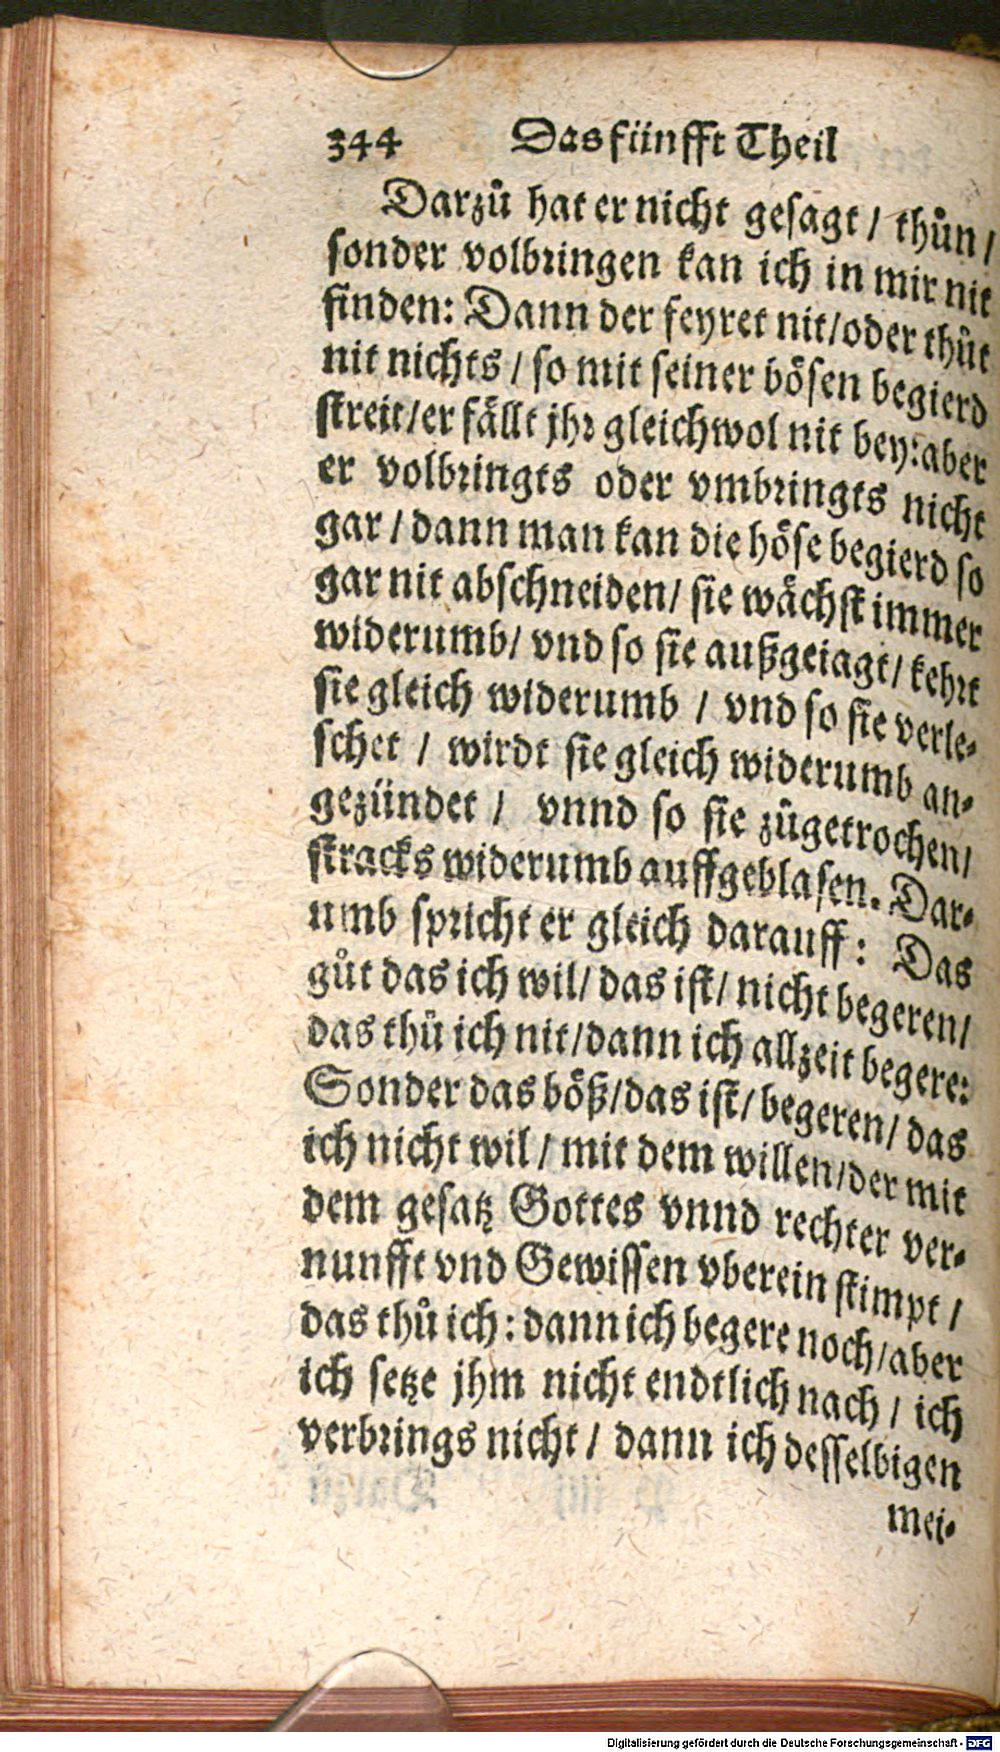 344 Das fünfft Theil
Darzů hat er nicht gesagt / thůn /
sonder volbringen kan ich in mir nit
finden: Dann der feyret nit/oder thůt
nit nichts / so mit seiner bösen begierd
streit/er fällt jhr gleichwol nit bey:aber
er volbringts oder vmbringts nicht
gar / dann man kan die höse begierd so
gar nit abschneiden/ sie wächst immer
widerumb/ vnd so sie außgeiagt/ kehrt
sie gleich widerumb / vnd so sie verle-
schet / wirdt sie gleich widerumb an-
gezündet / vnnd so sie zůgetrochen/
stracks widerumb auffgeblasen. Dar-
umb spricht er gleich darauff : Das
gůt das ich wil/ das ist/ nicht begeren/
das thů ich nit/dann ich allzeit begere:
Sonder das böß/das ist/ begeren/ das
ich nicht wil / mit dem willen/der mit
dem gesatz Gottes vnnd rechter ver-
nunfft vnd Gewissen vberein stimpt /
das thů ich : dann ich begere noch/aber
ich setze jhm nicht endtlich nach / ich
verbrings nicht / dann ich desselbigen
mei-
Digitalisierung gefördert durch die Deutsche Forschungsgemeinschaft - DFG